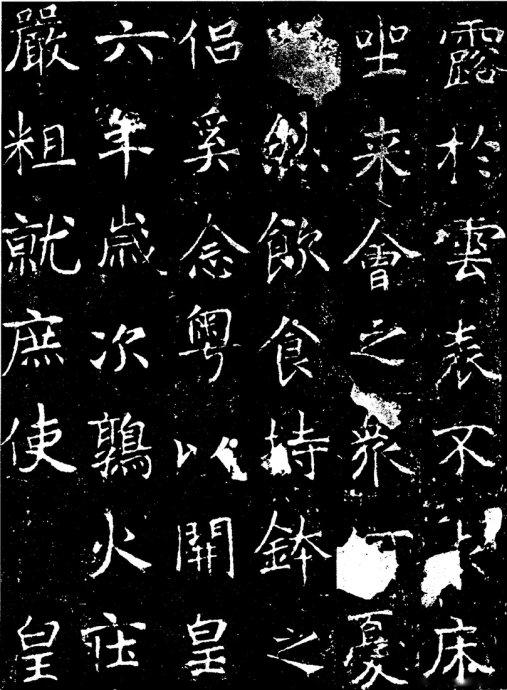 露於雲表不床
坐来會之衆憂
然飲食持鉢之
侣奚念粤以開皇
六年歲次鶉火莊
嚴粗就庶使皇